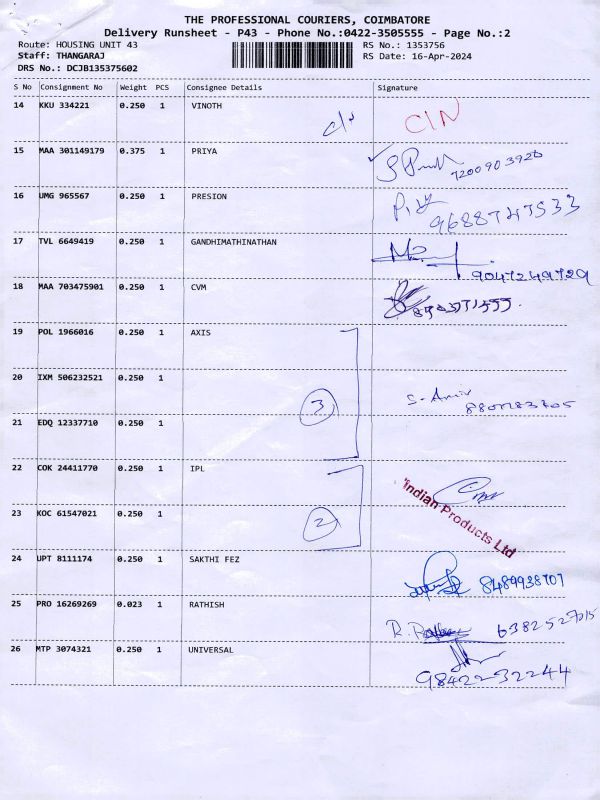 THE PROFESSIONAL COURIERS, COIMBATORE
Delivery Runsheet - P43 - Phone No.:0422-3505555 - Page No.:2
Route: HOUSING UNIT 43 RS No.: 1353756
Staff: THANGARAJ RS Date: 16-Apr-2024
DRS No.: DCJB135375602
S No Consignment No Weight PCS Consignee Details Signature
14 KKU 334221 0.250 1 VINOTH CIN
15 MAA 301149179 0.375 1 PRIYA 7200903920
16 UMG 965567 0.250 1 PRESION 9688747533
17 TVL 6649419 0.250 1 GANDHIMATHINATHAN 9047249729
18 MAA 703475901 0.250 1 CVM
19 POL 1966016 0.250 1 AXIS
20 IXM 506232521 0.250 1
3
21 EDQ 12337710 0.250 1
22 COK 24411770 0.250 1 IPL
Indian Products Ltd
23 KOC 61547021 0.250 1 2
24 UPT 8111174 0.250 1 SAKTHI FEZ 8489938707
25 PRO 16269269 0.023 1 RATHISH 6382527015
26 MTP 3074321 0.250 1 UNIVERSAL
9842232244